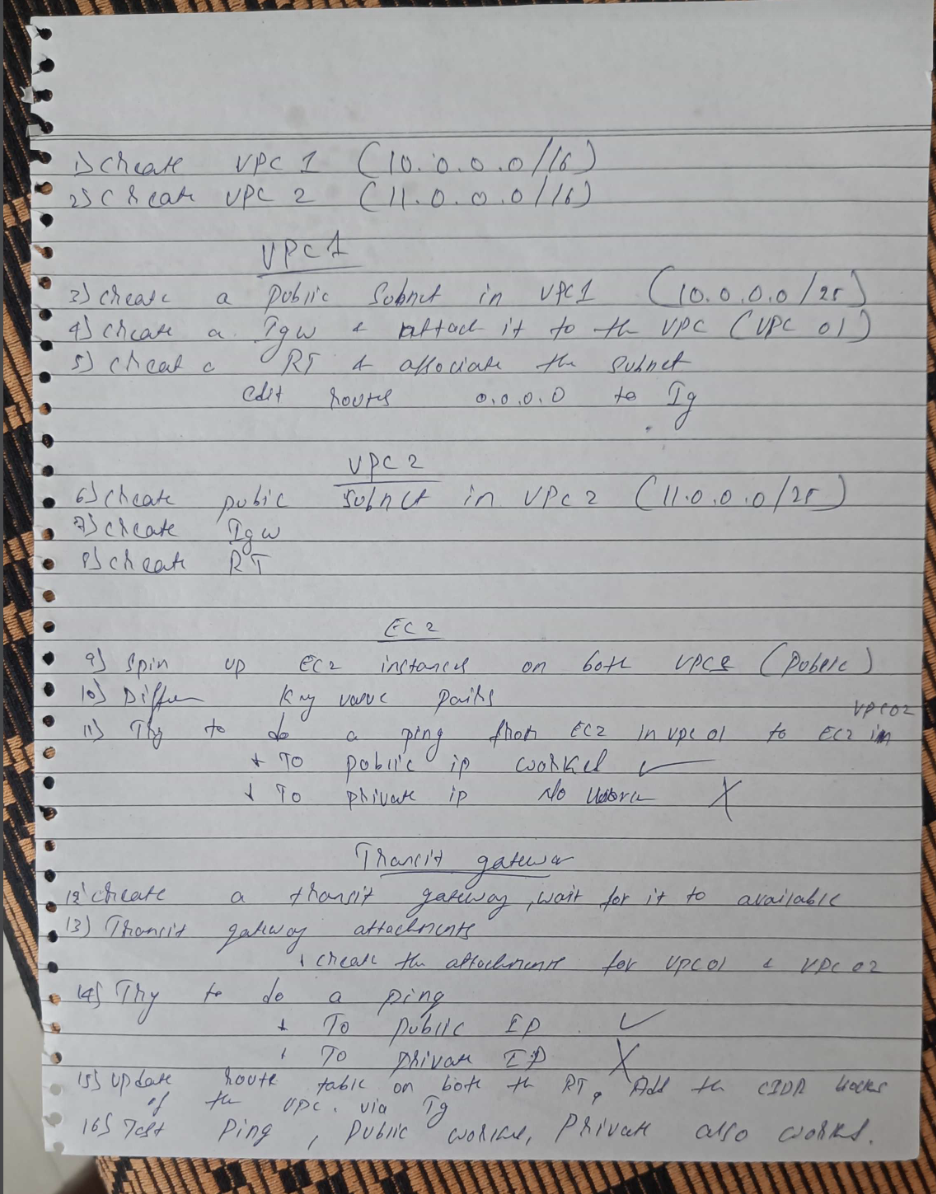 1) Create VPC 1 (10.0.0.0/16)
2) Create VPC 2 (11.0.0.0/16)
VPC1
3) Create a Public Subnet in VPC1 (10.0.0.0/25)
4) Create a Igw & Attach it to the VPC (VPC 01)
5) Creat a RT & associate the Subnet
edit routes 0.0.0.0 to Ig
VPC 2
6) Create pubic subnet in VPC 2 (11.0.0.0/25)
7) Create Igw
8) Create RT
EC2
9) Spin up EC2 instances on both VPCs (Public)
10) Differ Key value pairs
VPC02
11) Try to do a ping from EC2 in VPC 01 to EC2 in
+ To public ip worked ✓
+ To private ip No X
Transit gateway
12) Create a transit gateway, wait for it to available
13) Transit gateway attachments
Create the attachments for VPC01 & VPC 02
14) Try to do a ping
+ To public IP ✓
To private IP X
15) Update route table on both the RT, Add the CIDR blocks
of the VPC. via Tg
16) Test Ping, Public worked, Private also works.